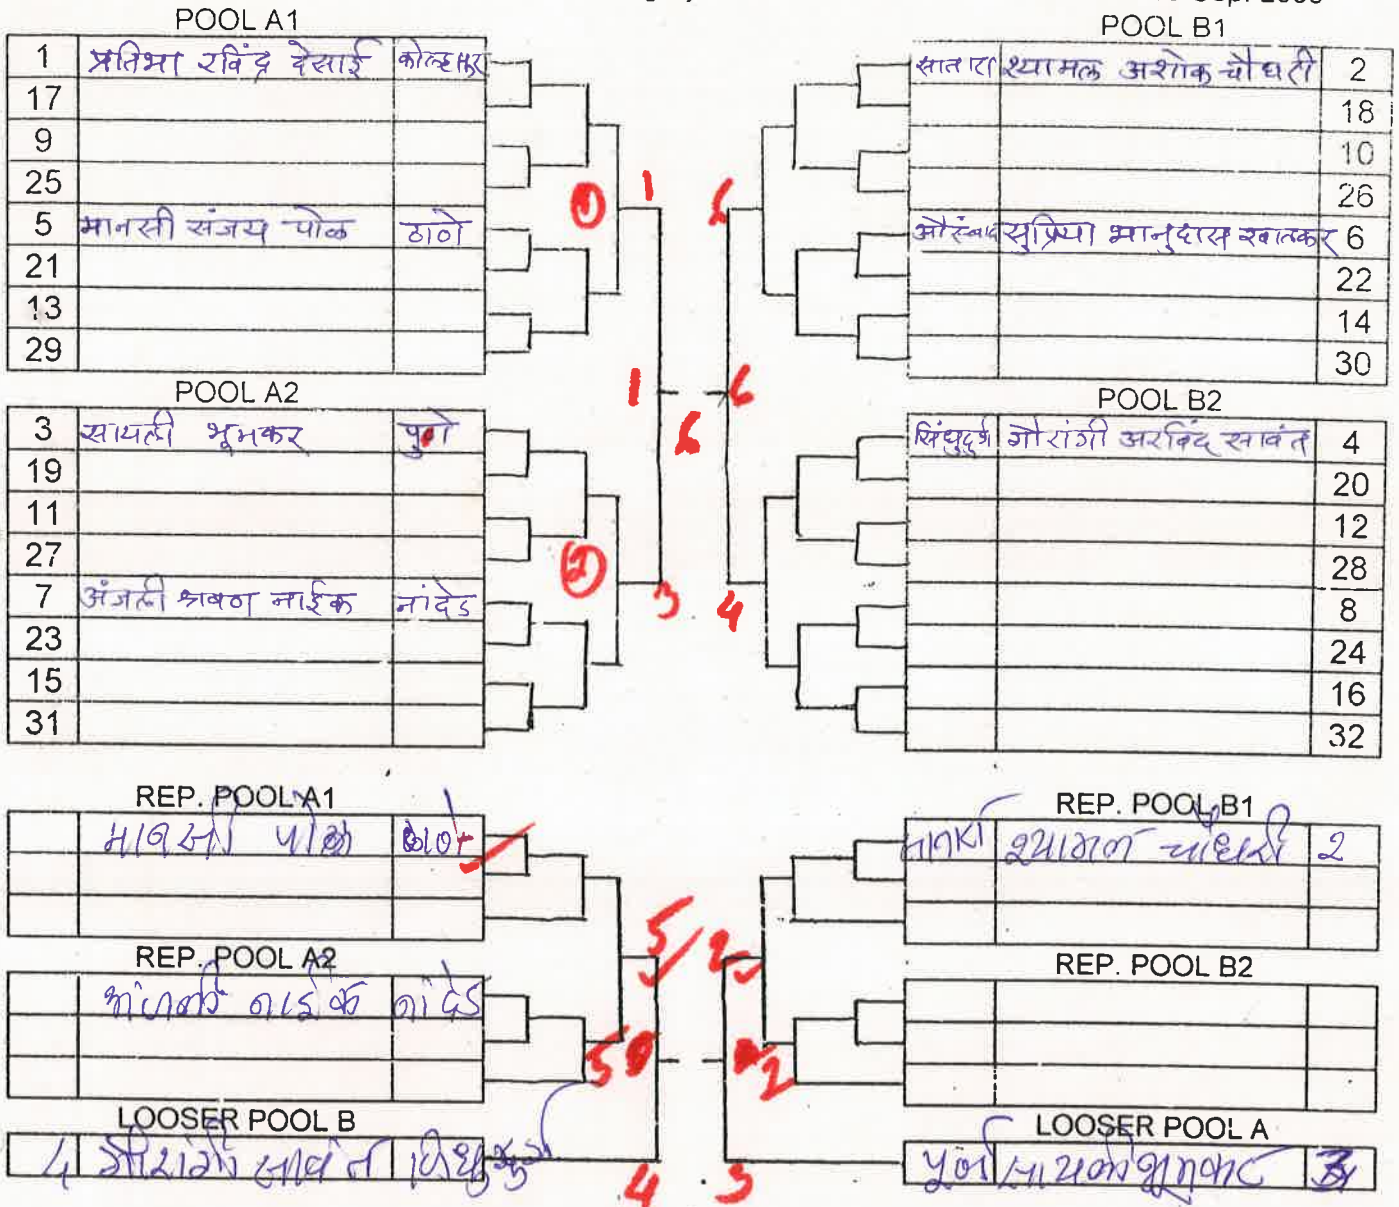 POOL A1
1 प्रतिभा रविंद्र देसाई कोल्हापूर
17
9
25
5 मानसी संजय पोळ ठाणे
21
13
29
POOL A2
3 सायली भूमकर पुणे
19
11
27
7 अंजली श्रवण नाईक नांदेड
23
15
31
POOL B1
सातारा श्यामल अशोक चौधरी 2
18
10
26
सुप्रिया भानुदास खातकर 6
22
14
30
POOL B2
सिंधुदुर्ग गौरांगी अरविंद सावंत 4
20
12
28
8
24
16
32
1 1 3
6 6 4
6
REP. POOL A1
मानसी पोळ
REP. POOL A2
अंजली नाईक नांदेड
LOOSER POOL B
4 गौरांगी सावंत
5 5 4
REP. POOL B1
श्यामल चौधरी 2
REP. POOL B2
LOOSER POOL A
सायली भूमकर 3
2 2 3